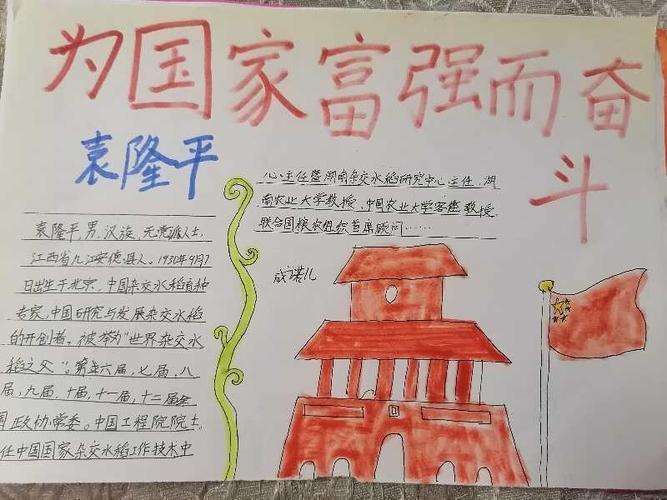 为国家富强而奋
斗
袁隆平
袁隆平,男,汉族,无党派人士,
江西省九江安德县人。1930年9月7
日出生于北京,中国杂交水稻育种
专家,中国研究与发展杂交水稻
的开创者。被举为"世界杂交水
稻之父"。第五六届,七届,八
届,九届,十届,十一届,十二届全
国政协常委。中国工程院院士。
任中国国家杂交水稻工作技术中
心主任暨湖南杂交水稻研究中心主任,湖
南农业大学教授、中国农业大学客座教授、
联合国粮农组织首席顾问……
成诺儿